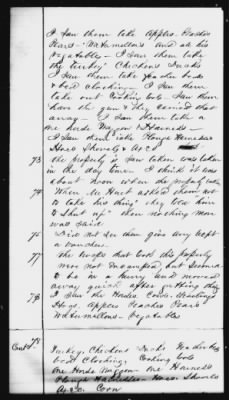 I saw them take Apples. Peaches
Pears - Watermellons and all his
vegetables - I saw them take
the turkeys Chickens Ducks
I saw them take feather beds
& bed clothing. I saw them
take out Cooking
have the gun & they carried that
away - I saw them take a
one horse Waggon & Harness -
I saw them take Plough Harness
Hoes Shovels & Axes
73 the property I saw taken was taken
in the day time I think it was
about noon when the property taken
74 When Mr Hart asked them not
to take his things they told him
to "Shut up" then nothing more
was said
75 Did not see them give any kept
a voucher
77 the troops that took this property
was not encamped, but seemed
to be in a hurry and moved
away quick after getting they
78 I saw the Horses Cows
Hogs. Apples Peaches Pears
Watermellons - Vegetables
Cont 78
Turkeys. Chickens Ducks Feather Bed
bed Clothing Cooking
One Horse Waggon One Harness
Plough Hoes Shovels
Axes Corn